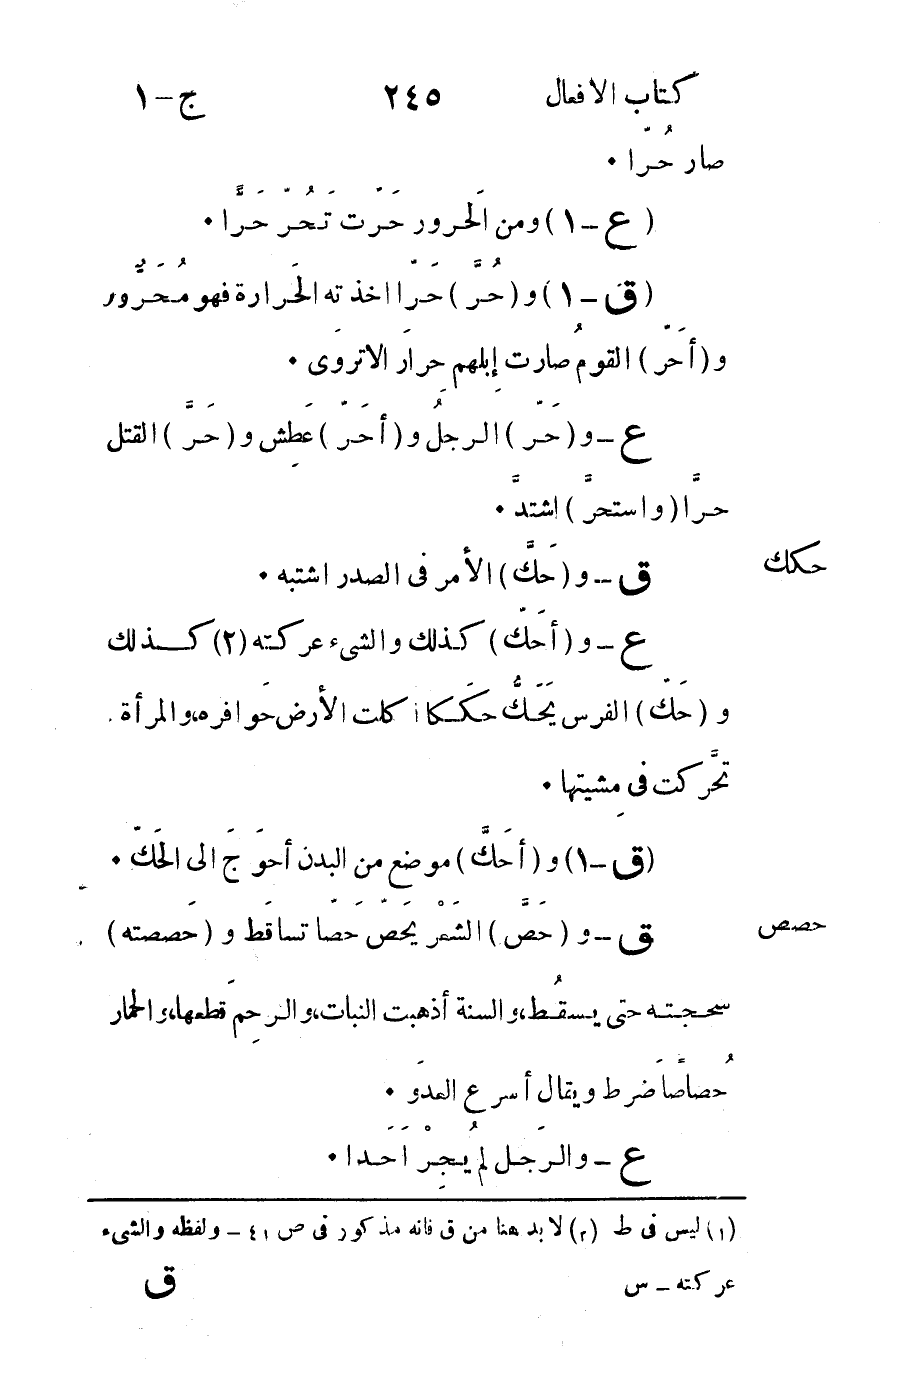 كتاب الافعال ٢٤٥ ج-١
صار حُرّا •
( ع -١) ومن الحَرور حَرّت تَحُرّ حَرًّا •
(ق -١) و (حُرَّ) حَرّا اخذته الحَرارة فهو مُحَرَّور
و (أحَرّ) القومُ صارت إبلهم حِرارَ الاتروَى •
ع - و (حَرّ) الرجلُ و (أحَرّ) عَطِش و (حَرَّ) القتل
حرًّا (واستحرَّ) اشتدَّ •
حكك ق - و (حَكَّ) الأمر فى الصدر اشتبه •
ع - و (أحَكّ) كذلك والشىء عركته (٢) كذلك
و (حَكّ) الفرس يَحَكُّ حكَكا اكلت الأرض حَوافره، والمرأة
تحَّركت فى مِشيتها •
(ق -١) و (أحَكَّ) موضع من البدن أحوَجَ الى الحَكّ •
حصص ق - و (حَصَّ) الشَعْر يَحَصّ حصَصا تساقَط و (حَصصته)
سحجتـه حتى يسقُط، والسنة أذهبت النبات، والرحِمَ قطعها، والحمار
حُصاصًا ضَرط ويقال أسرع العدوَ •
ع - والرَجل لم يُجِرْ أحَدا •
(١) ليس فى ط (٢) لابد هنا من ق فانه مذكور فى ص ٤١ - ولفظه والشىء
عركته - س ق